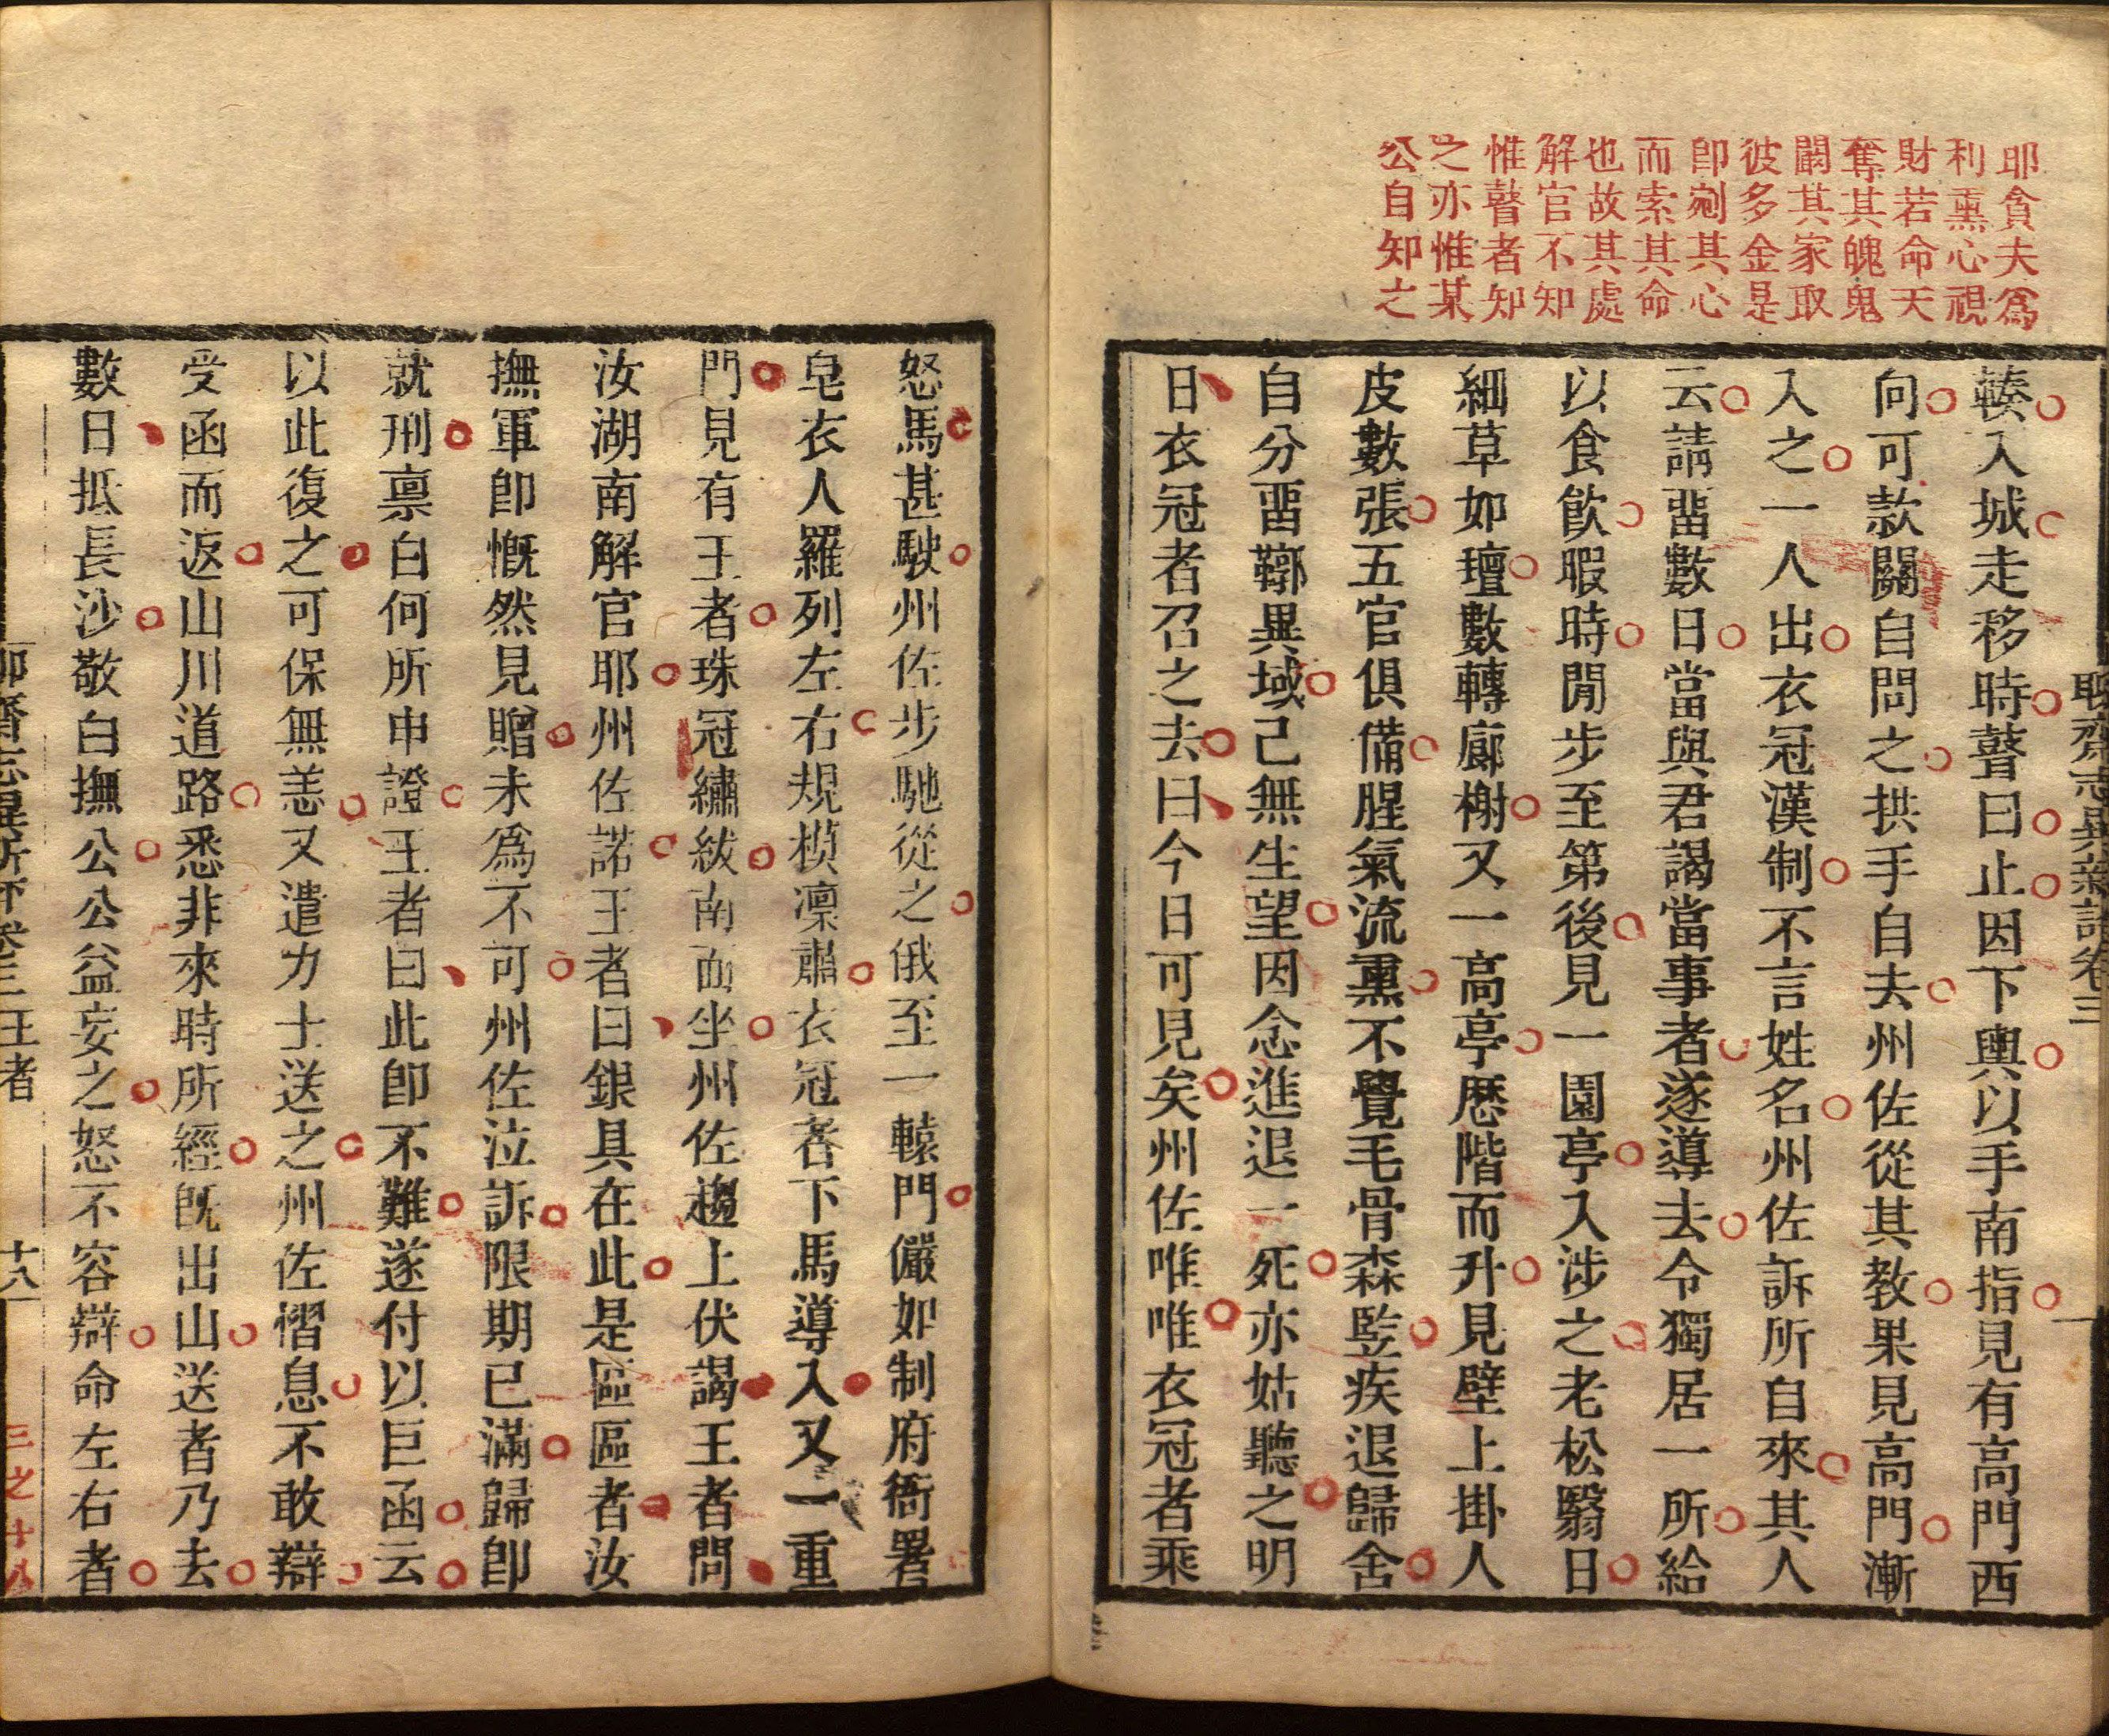 耶貪夫爲
利熏心視
財若命天
奪其魄鬼
闞其家取
彼多金是
卽剜其心
而索其命
也故其處
解官不知
惟瞽者知
之亦惟某
公自知之
聊齋志異新評卷三
輳入城走移時瞽曰止因下輿以手南指見有高門西
向可款關自問之拱手自去州佐從其教果見高門漸
入之一人出衣冠漢制不言姓名州佐訴所自來其人
云請畱數日當與君謁當事者遂導去令獨居一所給
以食飮暇時閒步至第後見一園亭入涉之老松翳日
細草如氊數轉廊榭又一高亭歷階而升見壁上掛人
皮數張五官俱備腥氣流熏不覺毛骨森竪疾退歸舍
自分畱鞹異域己無生望因念進退一死亦姑聽之明
日衣冠者召之去曰今日可見矣州佐唯唯衣冠者乘
怒馬甚駛州佐步馳從之俄至一轅門儼如制府衙署
皂衣人羅列左右規模凜肅衣冠者下馬導入又一重
門見有王者珠冠繡紱南面坐州佐趨上伏謁王者問
汝湖南解官耶州佐諾王者曰銀具在此是區區者汝
撫軍卽慨然見贈未爲不可州佐泣訴限期已滿歸卽
就刑禀白何所申證王者曰此卽不難遂付以巨函云
以此復之可保無恙又遣力士送之州佐慴息不敢辯
受函而返山川道路悉非來時所經旣出山送者乃去
數日抵長沙敬白撫公公益妄之怒不容辯命左右者
聊齋志異新評卷三 王者 十八
三之十八